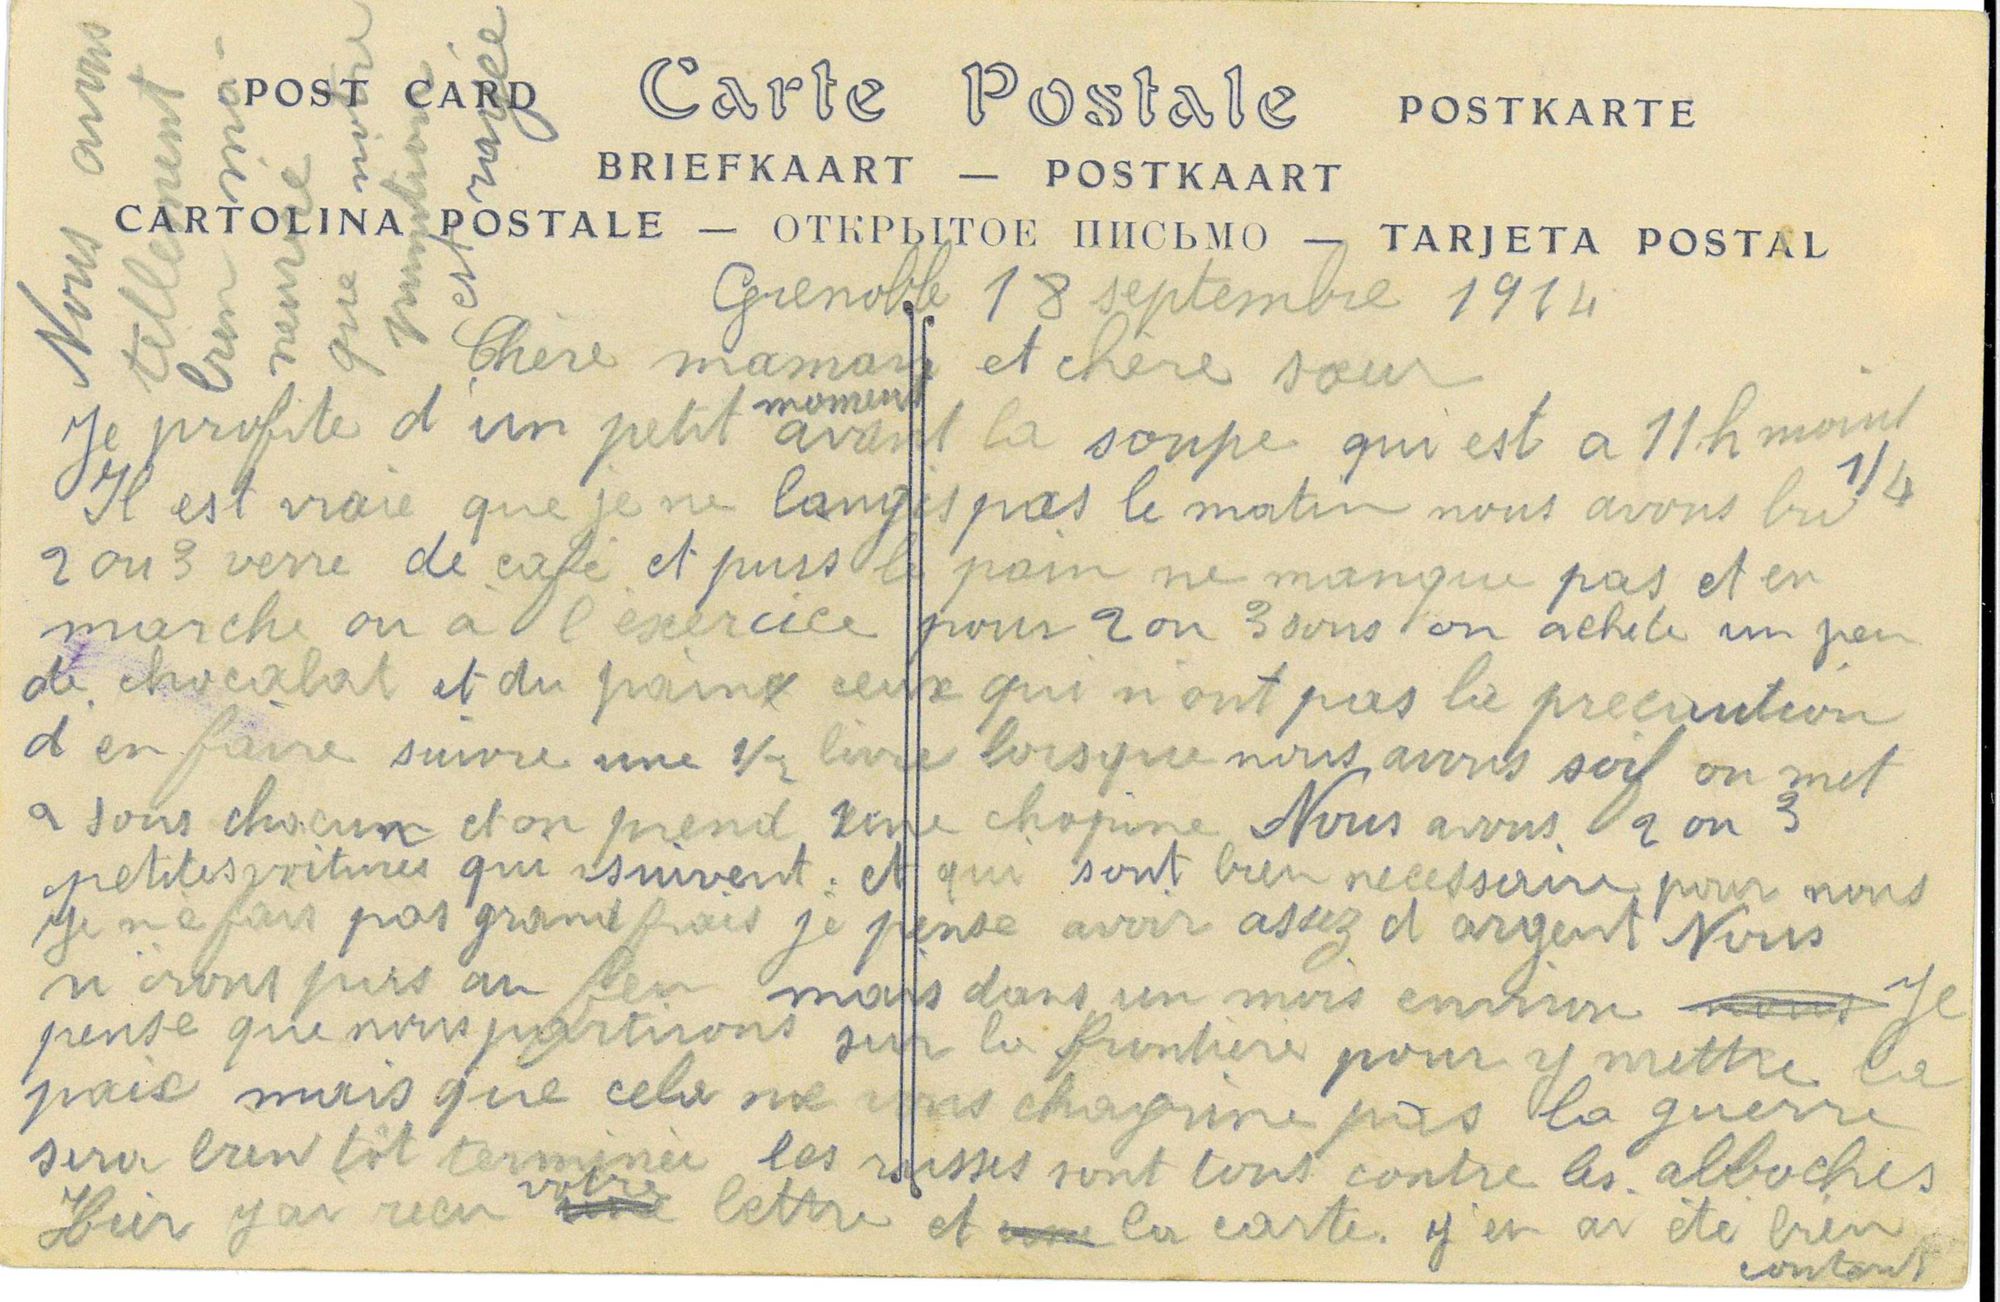 POST CARD Carte Postale POSTKARTE
BRIEFKAART — POSTKAART
CARTOLINA POSTALE — ОТКРЫТОЕ ПИСЬМО — TARJETA POSTAL
Grenoble 18 septembre 1914
Chère maman et chère sœur
Je profite d'un petit moment avant la soupe qui est a 11h moint 1/4
Il est vraie que je ne langis pas le matin nous avons bu
2 ou 3 verre de café et puis le pain ne manque pas et en
marche ou à l'exercice pour 2 ou 3 sous on achete un peu
de chocalat et du pain ceux qui n'ont pas la precaution
d en faire suivre une 1/2 livre lorsque nous avons soif on met
2 sous chacun et on prend une chopine Nous avons 2 ou 3
petites voitures qui suivent et qui sont bien necessaire pour nous
Je ne fais pas grand frais je pense avoir assez d argent Nous
n'irons pas au feu mais dans un mois environ nous Je
pense que nous partirons sur la frontière pour y mettre la
paix mais que cela ne vous chagrine pas la guerre
sera bientôt terminée les russes sont tous contre les alboches
Hier j'ai recu votre lettre et la carte. j'en ai été bien
contant
Nous avons
tellement
bien ma-
neuvré
que notre
punitions
est rayée